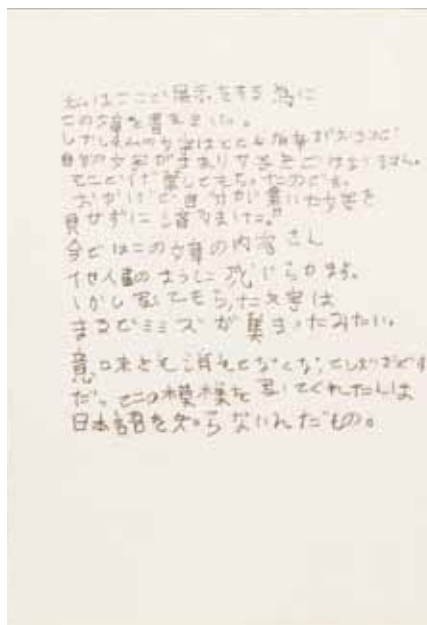 私はここで展示をする為に
この文章を書きました。
しかし私の文字はとても
自分の文字があまり
そこで
おかげで自分が書いた文字を
見せずに済みました。”
今ではこの文章の内容さえ
他人事のように感じられます。
しかし写してもらった文字は
まるでミミズが集まったみたい。
意味とも消えてなくなってしまいそう
だ。この模様を写してくれた人は
日本語を知らないんだもの。